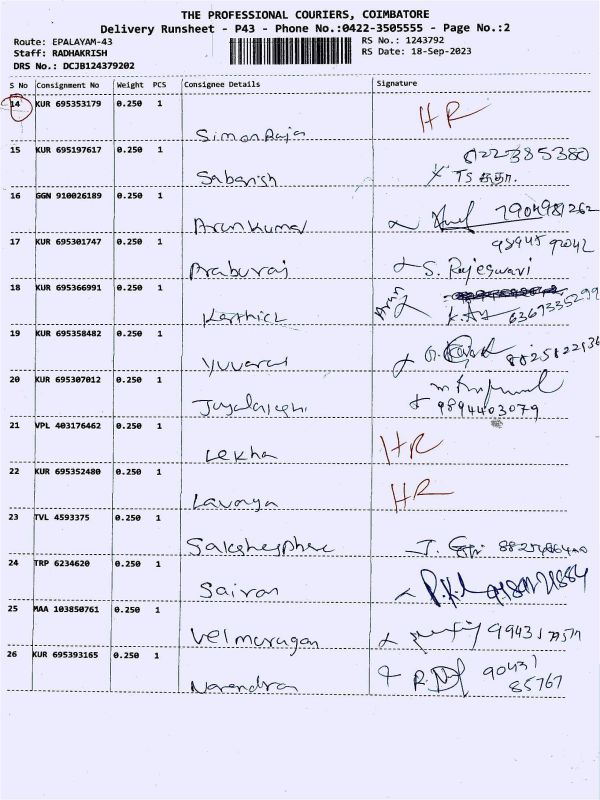 THE PROFESSIONAL COURIERS, COIMBATORE
Delivery Runsheet - P43 - Phone No.:0422-3505555 - Page No.:2
Route: EPALAYAM-43
Staff: RADHAKRISH
DRS No.: DCJB124379202
RS No.: 1243792
RS Date: 18-Sep-2023
S No Consignment No Weight PCS Consignee Details Signature
14 KUR 695353179 0.250 1 HR
SimonRaja
15 KUR 695197617 0.250 1
Sabarish
16 GGN 910026189 0.250 1
Arunkumar
17 KUR 695301747 0.250 1
Praburaj S. Rajeswari
18 KUR 695366991 0.250 1
Karthick
19 KUR 695358482 0.250 1
Yuvaraj
20 KUR 695307012 0.250 1
9894403079
21 VPL 403176462 0.250 1 HR
Lekha
22 KUR 695352480 0.250 1 HR
Lavanya
23 TVL 4593375 0.250 1
24 TRP 6234620 0.250 1
Sairam
25 MAA 103850761 0.250 1
Velmurugan
26 KUR 695393165 0.250 1 90431
Narendran 85767